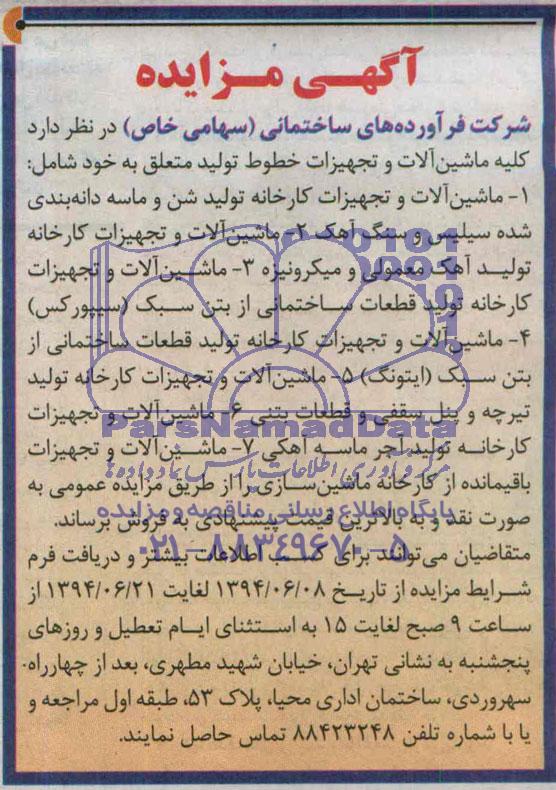 آگهی مزایده
شرکت فرآورده‌های ساختمانی (سهامی خاص) در نظر دارد
کلیه ماشین‌آلات و تجهیزات خطوط تولید متعلق به خود شامل:
۱- ماشین‌آلات و تجهیزات کارخانه تولید شن و ماسه دانه‌بندی
شده سیلیس و سنگ آهک ۲- ماشین‌آلات و تجهیزات کارخانه
تولید آهک معمولی و میکرونیزه ۳- ماشین‌آلات و تجهیزات
کارخانه تولید قطعات ساختمانی از بتن سبک (سیپورکس)
۴- ماشین‌آلات و تجهیزات کارخانه تولید قطعات ساختمانی از
بتن سبک (ایتونگ) ۵- ماشین‌آلات و تجهیزات کارخانه تولید
تیرچه و پنل سقفی و قطعات بتنی ۶- ماشین‌آلات و تجهیزات
ParsNamadData
کارخانه تولید آجر ماسه آهکی ۷- ماشین‌آلات و تجهیزات
مرکز فرآوری اطلاعات پارس نماد داده‌ها
باقیمانده از کارخانه ماشین‌سازی را از طریق مزایده عمومی به
پایگاه اطلاع رسانی مناقصه و مزایده
صورت نقد و به بالاترین قیمت پیشنهادی به فروش برساند.
۰۲۱-۸۸۳۴۹۶۷۰-۵
متقاضیان می‌توانند برای کسب اطلاعات بیشتر و دریافت فرم
شرایط مزایده از تاریخ ۱۳۹۴/۰۶/۰۸ لغایت ۱۳۹۴/۰۶/۲۱ از
ساعت ۹ صبح لغایت ۱۵ به استثنای ایام تعطیل و روزهای
پنجشنبه به نشانی تهران، خیابان شهید مطهری، بعد از چهارراه
سهروردی، ساختمان اداری محیا، پلاک ۵۳، طبقه اول مراجعه و
یا با شماره تلفن ۸۸۴۲۳۲۴۸ تماس حاصل نمایند.